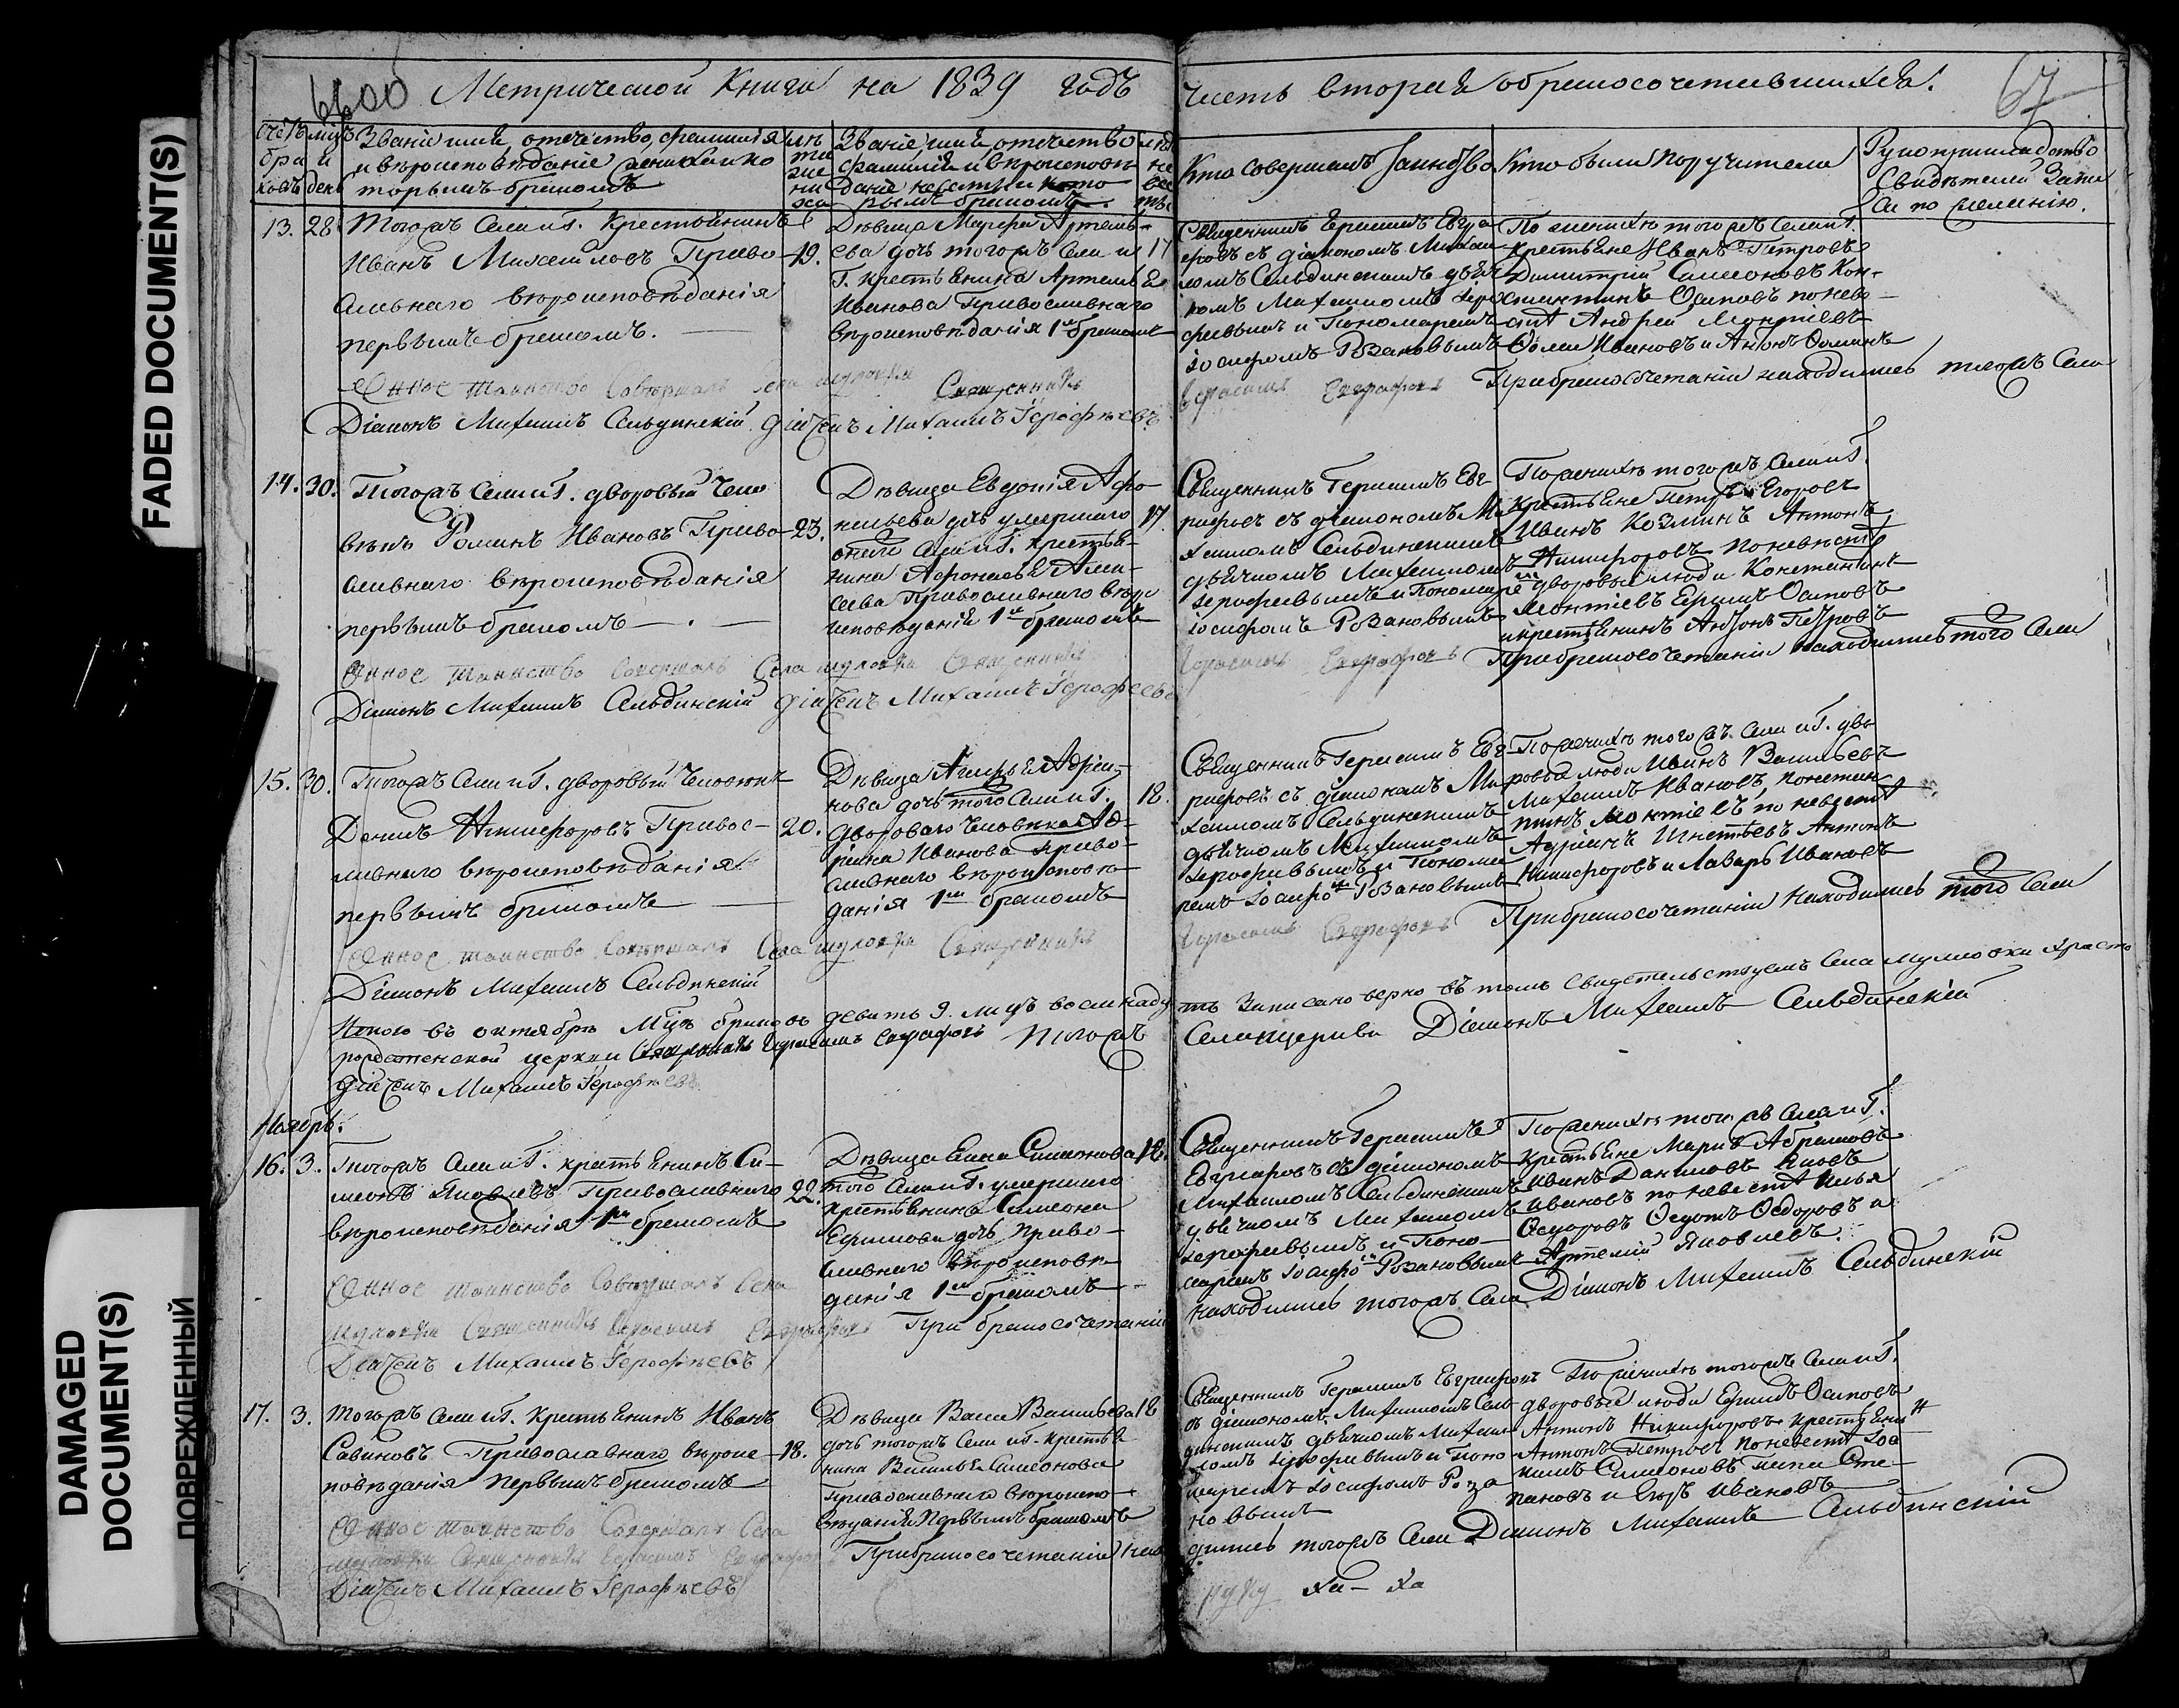 FADED DOCUMENT(S)
DAMAGED
DOCUMENT(S)
ПОВРЕЖДЕННЫЙ
Метрической Книги на 1839 годъ
часть вторая о бракосочетавшихся.
67
Счетъ браковъ
мцъ и день
Званіе имя, отечество, фамилія
и вѣроисповѣданіе жениха и ко
торымъ бракомъ
лѣта жениха
Званіе имя, отечество
фамилія и вѣроисповѣ
даніе невесты и кото
рымъ бракомъ.
Кто совершалъ Таинство
Кто были поручители
Рукоприкладство
Свидѣтелей записи
по желанію.
13. 28.
Тогожъ Села и Г. Крестьянинъ
Иванъ Михайловъ Право-
славнаго вѣроисповѣданія
первымъ бракомъ.
19.
Дѣвица Марфа Артемь-
ева дочь тогожъ Села и
Г. Крестьянина Артемья
Иванова Православнаго
вѣроисповѣданія 1мъ бракомъ
17
Священникъ Герасимъ Евгра
фовъ съ діакономъ Михаи
ломъ Сельдинскимъ дьяч
комъ Михаиломъ Іеро
фѣевымъ и Пономаремъ
Іосифомъ Розановымъ
По женихѣ тогожъ села и Г.
Крестьяне Иванъ Петровъ
Димитрій Симеоновъ Кон-
стантинъ Осиповъ по неве-
стѣ Андрей Моктіевъ
Ѳома Ивановъ и Антонъ Ѳоминъ
Оное таинство Совершалъ села Священникъ
Герасимъ Евграфовъ При бракосочетаніи находились тогожъ Села
Діаконъ Михаилъ Сельдинскій Діячекъ Михаилъ Іерофѣевъ
14. 30.
Тогожъ Села и Г. дворовый чело
вѣкъ Романъ Ивановъ Право-
славнаго вѣроисповѣданія
первымъ бракомъ
23.
Дѣвица Евдокія Афо
насьева дочь умершаго
онаго Села и Г. крестья-
нина Афонасья Алек-
сѣева Православнаго вѣро
исповѣданія 1мъ бракомъ
17.
Священникъ Герасимъ Евг-
рафовъ съ діакономъ Ми
хаиломъ Сельдинскимъ
дьячкомъ Михаиломъ
Іерофѣевымъ и Пономаре
Іосифомъ Розановымъ
По женихѣ тогожъ Села и Г.
Крестьяне Петръ Егоровъ
Иванъ Козминъ Антонъ
Никифоровъ по невестѣ
дворовые люди Константинъ
Моктіевъ Ефимъ Осиповъ
и крестьянинъ Антонъ Петровъ
Оное таинство Совершалъ Села Священникъ
Герасимъ Евграфовъ При бракосочетаніи находились того Села
Діаконъ Михаилъ Сельдинскій Діячекъ Михаилъ Іерофѣевъ
15. 30.
Тогожъ Села и Г. дворовый человѣкъ
Данилъ Никифоровъ Правос-
лавнаго вѣроисповѣданія
первымъ бракомъ
20.
Дѣвица Агафья Адріа-
нова дочь того Села и Г.
двороваго человѣка Ад-
ріана Иванова Право-
славнаго вѣроисповѣ-
данія 1мъ бракомъ
18.
Священникъ Герасимъ Евг-
рафовъ съ діакономъ Ми
хаиломъ Сельдинскимъ
дьячкомъ Михаиломъ
Іерофѣевымъ и Понома
ремъ Іосифомъ Розановымъ
По женихѣ тогожъ Села и Г. дво
ровыя люди Иванъ Васильевъ
Михаилъ Ивановъ, Констан-
тинъ Моктіевъ по невестѣ
Адріанъ Игнатьевъ Антонъ
Никифоровъ и Лазарь Ивановъ
Оное таинство Совершалъ Села Священникъ
Герасимъ Евграфовъ При бракосочетаніи находились того Села
Діаконъ Михаилъ Сельдинскій
Итого въ октябрѣ Мцѣ браковъ девять 9. лицъ восемнадц
ть Записано верно въ томъ Свидетельствуемъ Села Христо
рождественской церкви Священникъ Герасимъ Евграфовъ тогожъ
Села церкви Діаконъ Михаилъ Сельдинскій
Діячекъ Михаилъ Іерофѣевъ
Ноябрь.
16. 3.
Тогожъ Села и Г. крестьянинъ Си-
меонъ Яковлевъ Православнаго
вѣроисповѣданія 1мъ бракомъ
22.
Дѣвица Симеонова
того Села и Г. умершаго
крестьянина Симеона
Ефимова дочь Право-
славнаго вѣроисповѣ-
данія 1мъ бракомъ
18.
Священникъ Герасимъ
Евграфовъ съ діакономъ
Михаиломъ Сельдинскимъ
дьячкомъ Михаиломъ
Іерофѣевымъ и Поно-
маремъ Іосифомъ Розановымъ
По женихѣ тогожъ Села и Г.
Крестьяне Маркъ Абрамовъ
Иванъ Даниловъ Яковъ
Ивановъ по невестѣ Илья
Ѳедоровъ Ѳедотъ Ѳедоровъ и
Артемій Яковлевъ.
Оное таинство Совершалъ Села
Священникъ Герасимъ Евграфовъ При бракосочетаніи
находились тогожъ Села Діаконъ Михаилъ Сельдинскій
Діячекъ Михаилъ Іерофѣевъ
17. 3.
Тогожъ Села и Г. Крестьянинъ Иванъ
Савиновъ Православнаго вѣроис-
повѣданія первымъ бракомъ
18.
Дѣвица Васса Васильева
дочь тогожъ Села и Г. крестья
нина Василья Симеонова
Православнаго вѣроиспо-
вѣданія Первымъ бракомъ
18
Священникъ Герасимъ Евграфовъ
съ діакономъ Михаиломъ Сель-
динскимъ дьячкомъ Михаи-
ломъ Іерофѣевымъ и Поно
маремъ Іосифомъ Роза
новымъ
По женихѣ тогожъ Села и Г.
дворовые люди Ефимъ Осиповъ
Антонъ Никифоровъ крестьянин
Антонъ Петровъ по невестѣ Іоа
кимъ Симеоновъ Сте-
пановъ и Егоръ Ивановъ
Оное таинство Совершалъ Села
Священникъ Герасимъ Евграфовъ При бракосочетаніи нахо
дились тогожъ Села Діаконъ Михаилъ Сельдинскій
Діячекъ Михаилъ Іерофѣевъ
руку